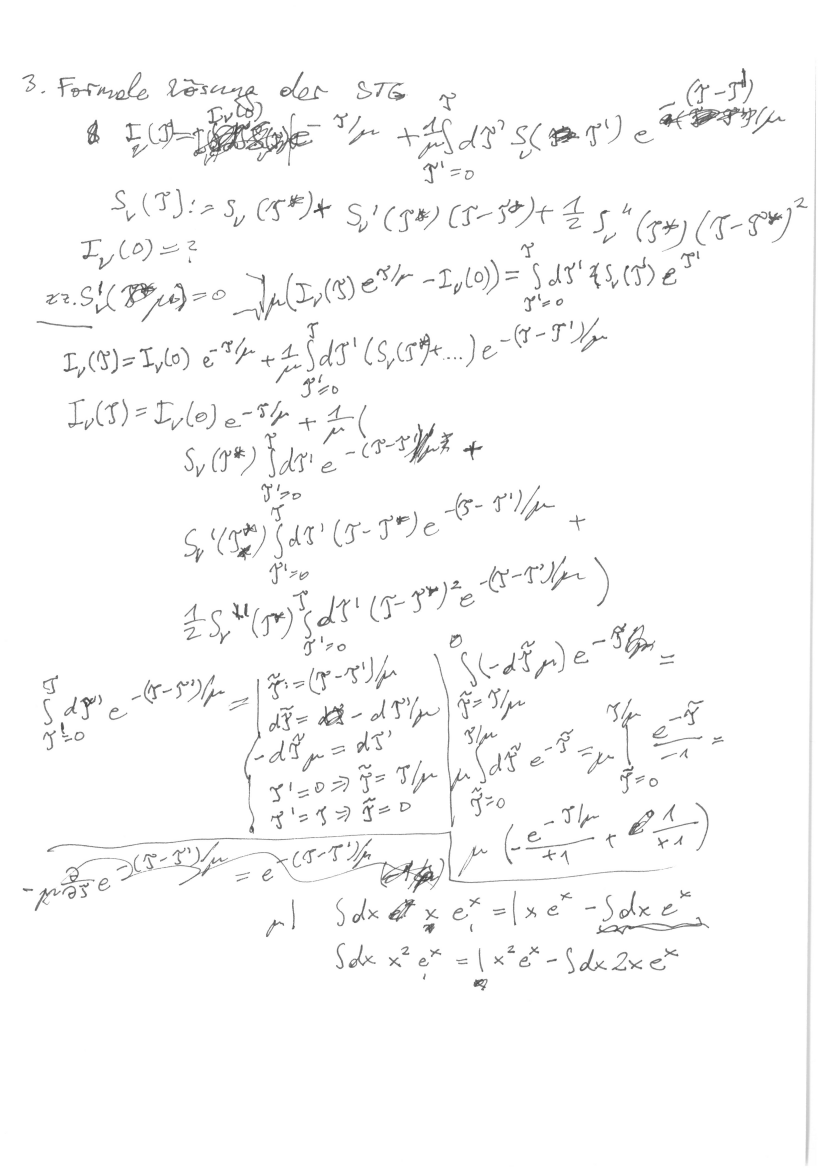 3. Formale Lösung der STG
I_ν(τ) = I_ν(0) e^{-τ/μ} + 1/μ ∫_{τ'=0}^{τ} dτ' S_ν(τ') e^{-(τ-τ')/μ}
S_ν(τ) := S_ν(τ*) + S_ν'(τ*) (τ-τ*) + 1/2 S_ν''(τ*) (τ-τ*)²
I_ν(0) = ?
zz. S_ν'( μ) = 0 μ(I_ν(τ) e^{τ/μ} - I_ν(0)) = ∫_{τ'=0}^{τ} dτ' S_ν(τ') e^{τ'}
I_ν(τ) = I_ν(0) e^{-τ/μ} + 1/μ ∫_{τ'=0}^{τ} dτ' (S_ν(τ*)+....) e^{-(τ-τ')/μ}
I_ν(τ) = I_ν(0) e^{-τ/μ} + 1/μ (
S_ν(τ*) ∫_{τ'=0}^{τ} dτ' e^{-(τ-τ')/μ} +
S_ν'(τ*) ∫_{τ'=0}^{τ} dτ' (τ-τ*) e^{-(τ-τ')/μ} +
1/2 S_ν''(τ*) ∫_{τ'=0}^{τ} dτ' (τ-τ*)² e^{-(τ-τ')/μ} )
∫_{τ'=0}^{τ} dτ' e^{-(τ-τ')/μ} =
τ̃ := (τ-τ')/μ
dτ̃ = - dτ'/μ
-dτ̃ μ = dτ'
τ'=0 ⇒ τ̃ = τ/μ
τ'=τ ⇒ τ̃ = 0
∫_{τ̃=τ/μ}^{0} (-dτ̃ μ) e^{-τ̃} =
μ ∫_{τ̃=0}^{τ/μ} dτ̃ e^{-τ̃} = μ |_{τ̃=0}^{τ/μ} e^{-τ̃}/-1 =
μ (- e^{-τ/μ}/+1 + 1/+1)
-μ ∂/∂τ e^{-(τ-τ')/μ} = e^{-(τ-τ')/μ}
μ| ∫dx x e^x = | x e^x - ∫dx e^x
∫dx x² e^x = | x² e^x - ∫dx 2x e^x